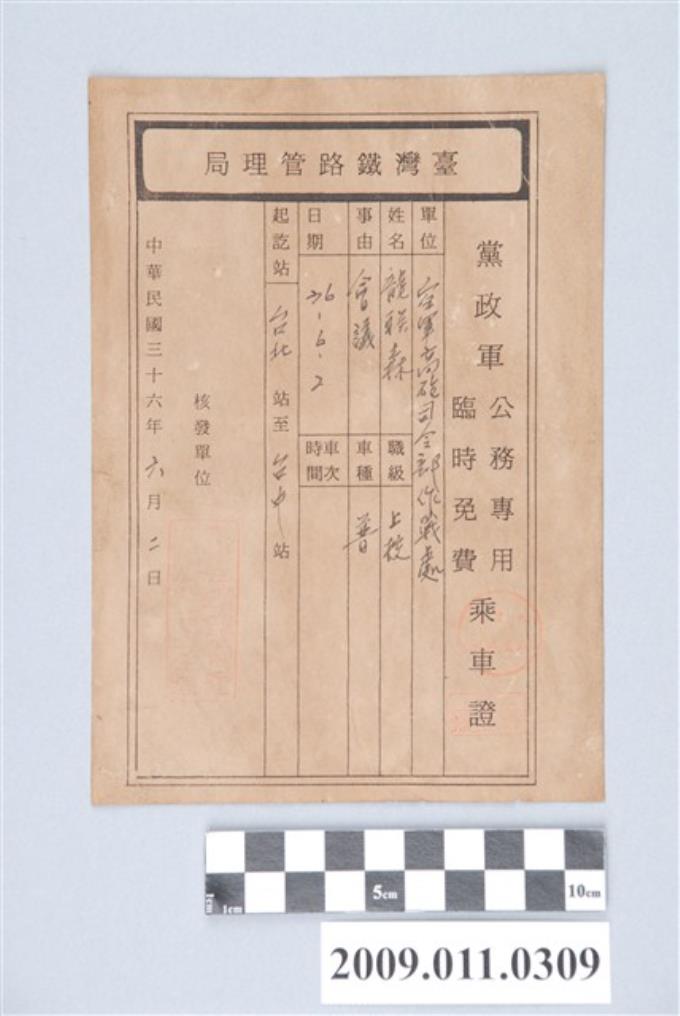 臺灣鐵路管理局
黨政軍公務專用臨時免費乘車證
單位 空軍高砲司令部作戰處
姓名 龍騤森 職級 上校
事由 會議 車種 普
日期 36-6-2 車次時間
起訖站 台北站至台中站
核發單位
中華民國三十六年六月二日
1cm 5cm 10cm
2009.011.0309